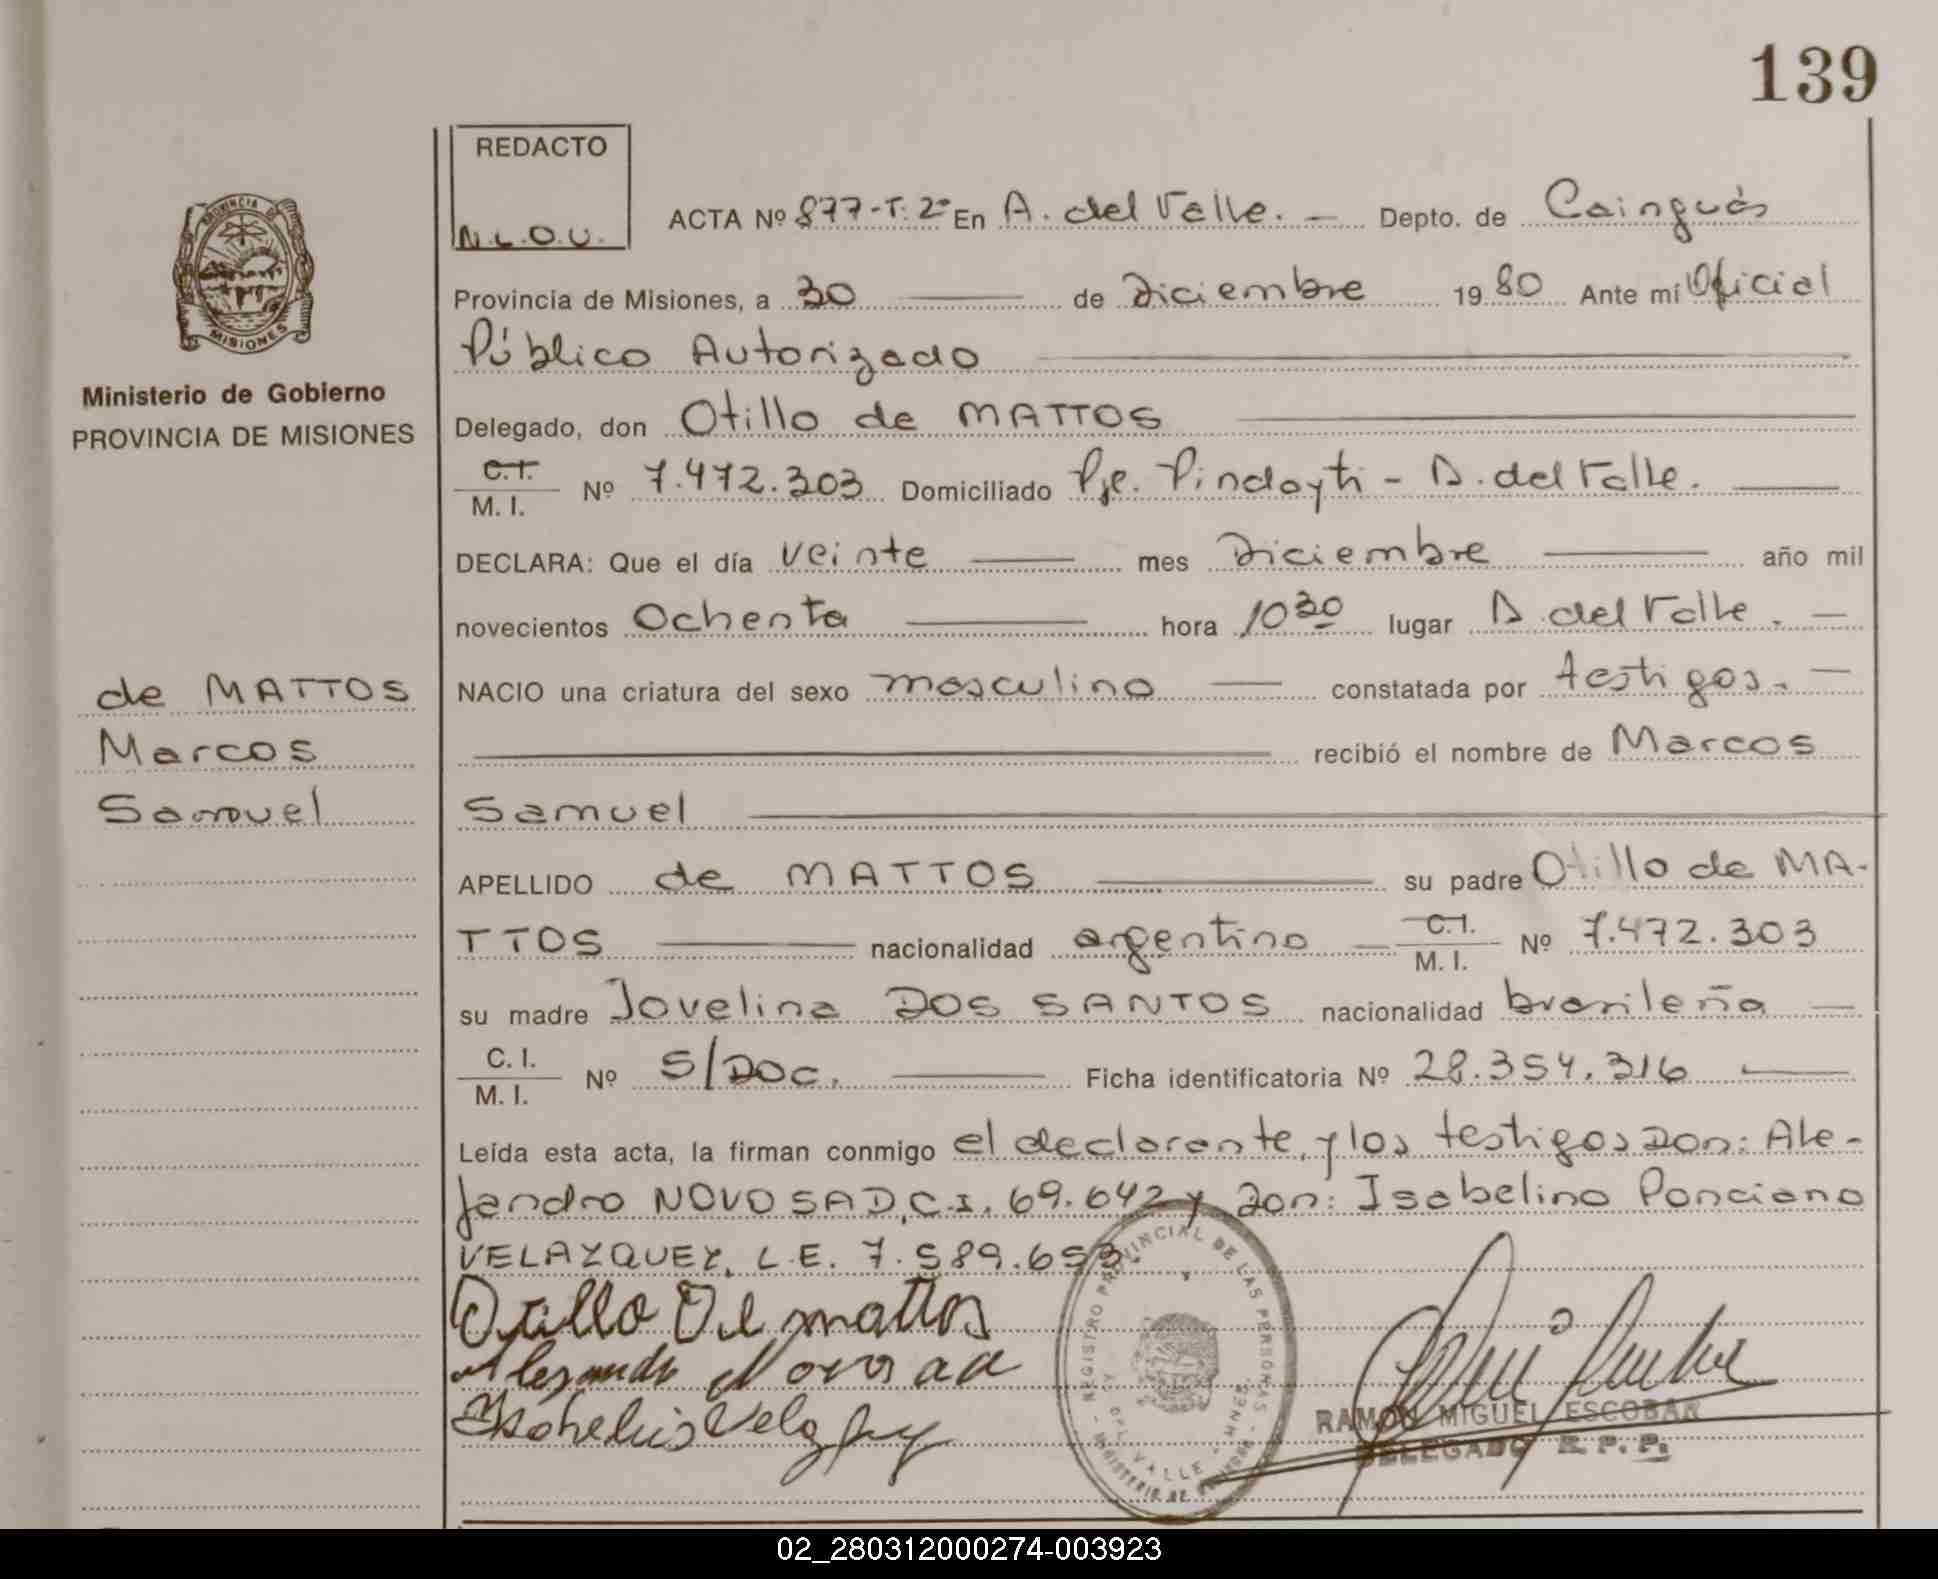 139
REDACTO
N.L.O.U.
ACTA Nº 877-T. 2º En A. del Valle. - Depto. de Cainguás
Provincia de Misiones, a 30 de Diciembre 1980 Ante mí Oficial
Público Autorizado
Delegado, don Otillo de MATTOS
C.I.
M. I. Nº 7.472.303 Domiciliado Pje. Pindayti - A. del Valle.
DECLARA: Que el día veinte mes Diciembre año mil
novecientos Ochenta hora 10 30 lugar A. del Valle. -
NACIO una criatura del sexo masculino constatada por testigos. -
recibió el nombre de Marcos
Samuel
APELLIDO de MATTOS su padre Otillo de MA-
TTOS nacionalidad argentino - C.I.
M. I. Nº 7.472.303
su madre Jovelina DOS SANTOS nacionalidad brasileña -
C. I.
M. I. Nº S/DOC. Ficha identificatoria Nº 28.354.316
Leída esta acta, la firman conmigo el declarante, y los testigos Don: Ale-
jandro NOVOSAD, C.I. 69.642 y Don: Isabelino Ponciano
VELAZQUEZ, L.E. 7.589.653.
Otillo De mattos
Alejandro Novosad
Isabelino Velazquez
REGISTRO PROVINCIAL DE LAS PERSONAS
DEL VALLE - MNES.
MINISTERIO DE GOBIERNO
RAMON MIGUEL ESCOBAR
DELEGADO R. P. P.
PROVINCIA DE
MISIONES
Ministerio de Gobierno
PROVINCIA DE MISIONES
de MATTOS
Marcos
Samuel
02_280312000274-003923